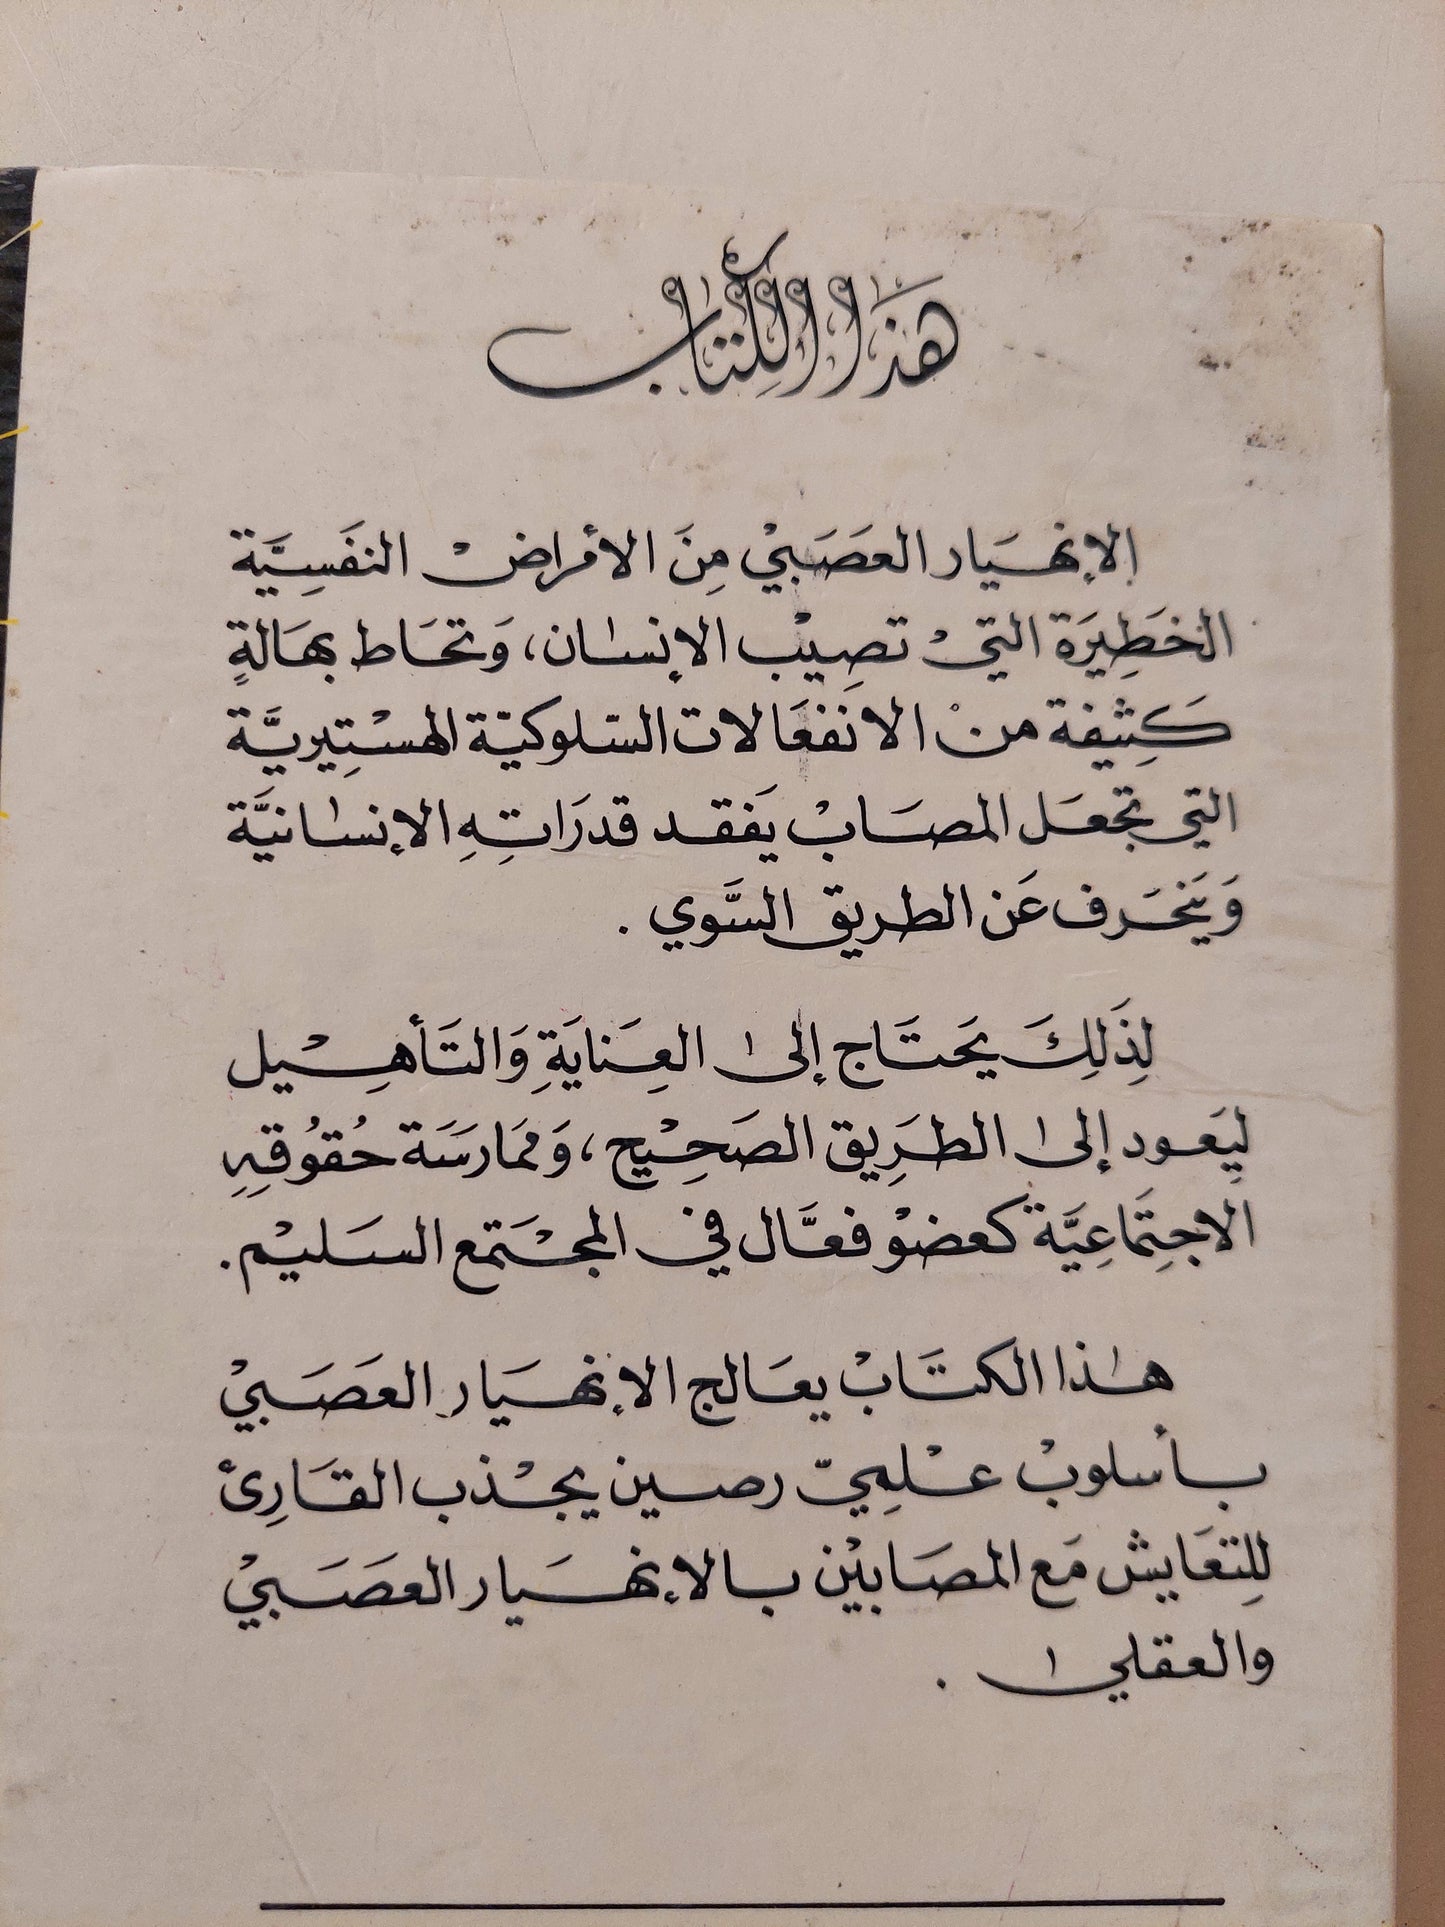 هَذَا الكِتَاب
الإنهسَيار العصَبَيْ مِنَ الأمراضْ النفَسِيَّة
الخطِيرَة التيْ تصِيْب الإنسان، وَتحَاط بهَالةٍ
كَثِيفة منْ الانفعَالات السّلوكيّة الهستِيريَّة
التي تجعَل المصَابْ يَفقد قدرَاتِهِ الإنسانيَّة
وَيَنحَرف عَن الطريق السَّوي .
لِذَلِكَ يَحتَاج إلى العِنَايَةِ وَالتَأهِيْل
لِيَعود إلى الطرَيِق الصَحِيْح، وَممَارسَة حُقوُقِهِ
الاجتِمَاعِيَّة كعضوْ فعَّال في المجْتمَع السَليْم.
هٰذا الكتَابْ يعَالج الإنهسَيار العَصَبَيْ
بأسلوبْ عْلمِيّ رصين يجْذب القَارِئ
لِلتعَايش مَع المصَابيْن بالإنهسَيار العَصَبَيْ
والعقلي .